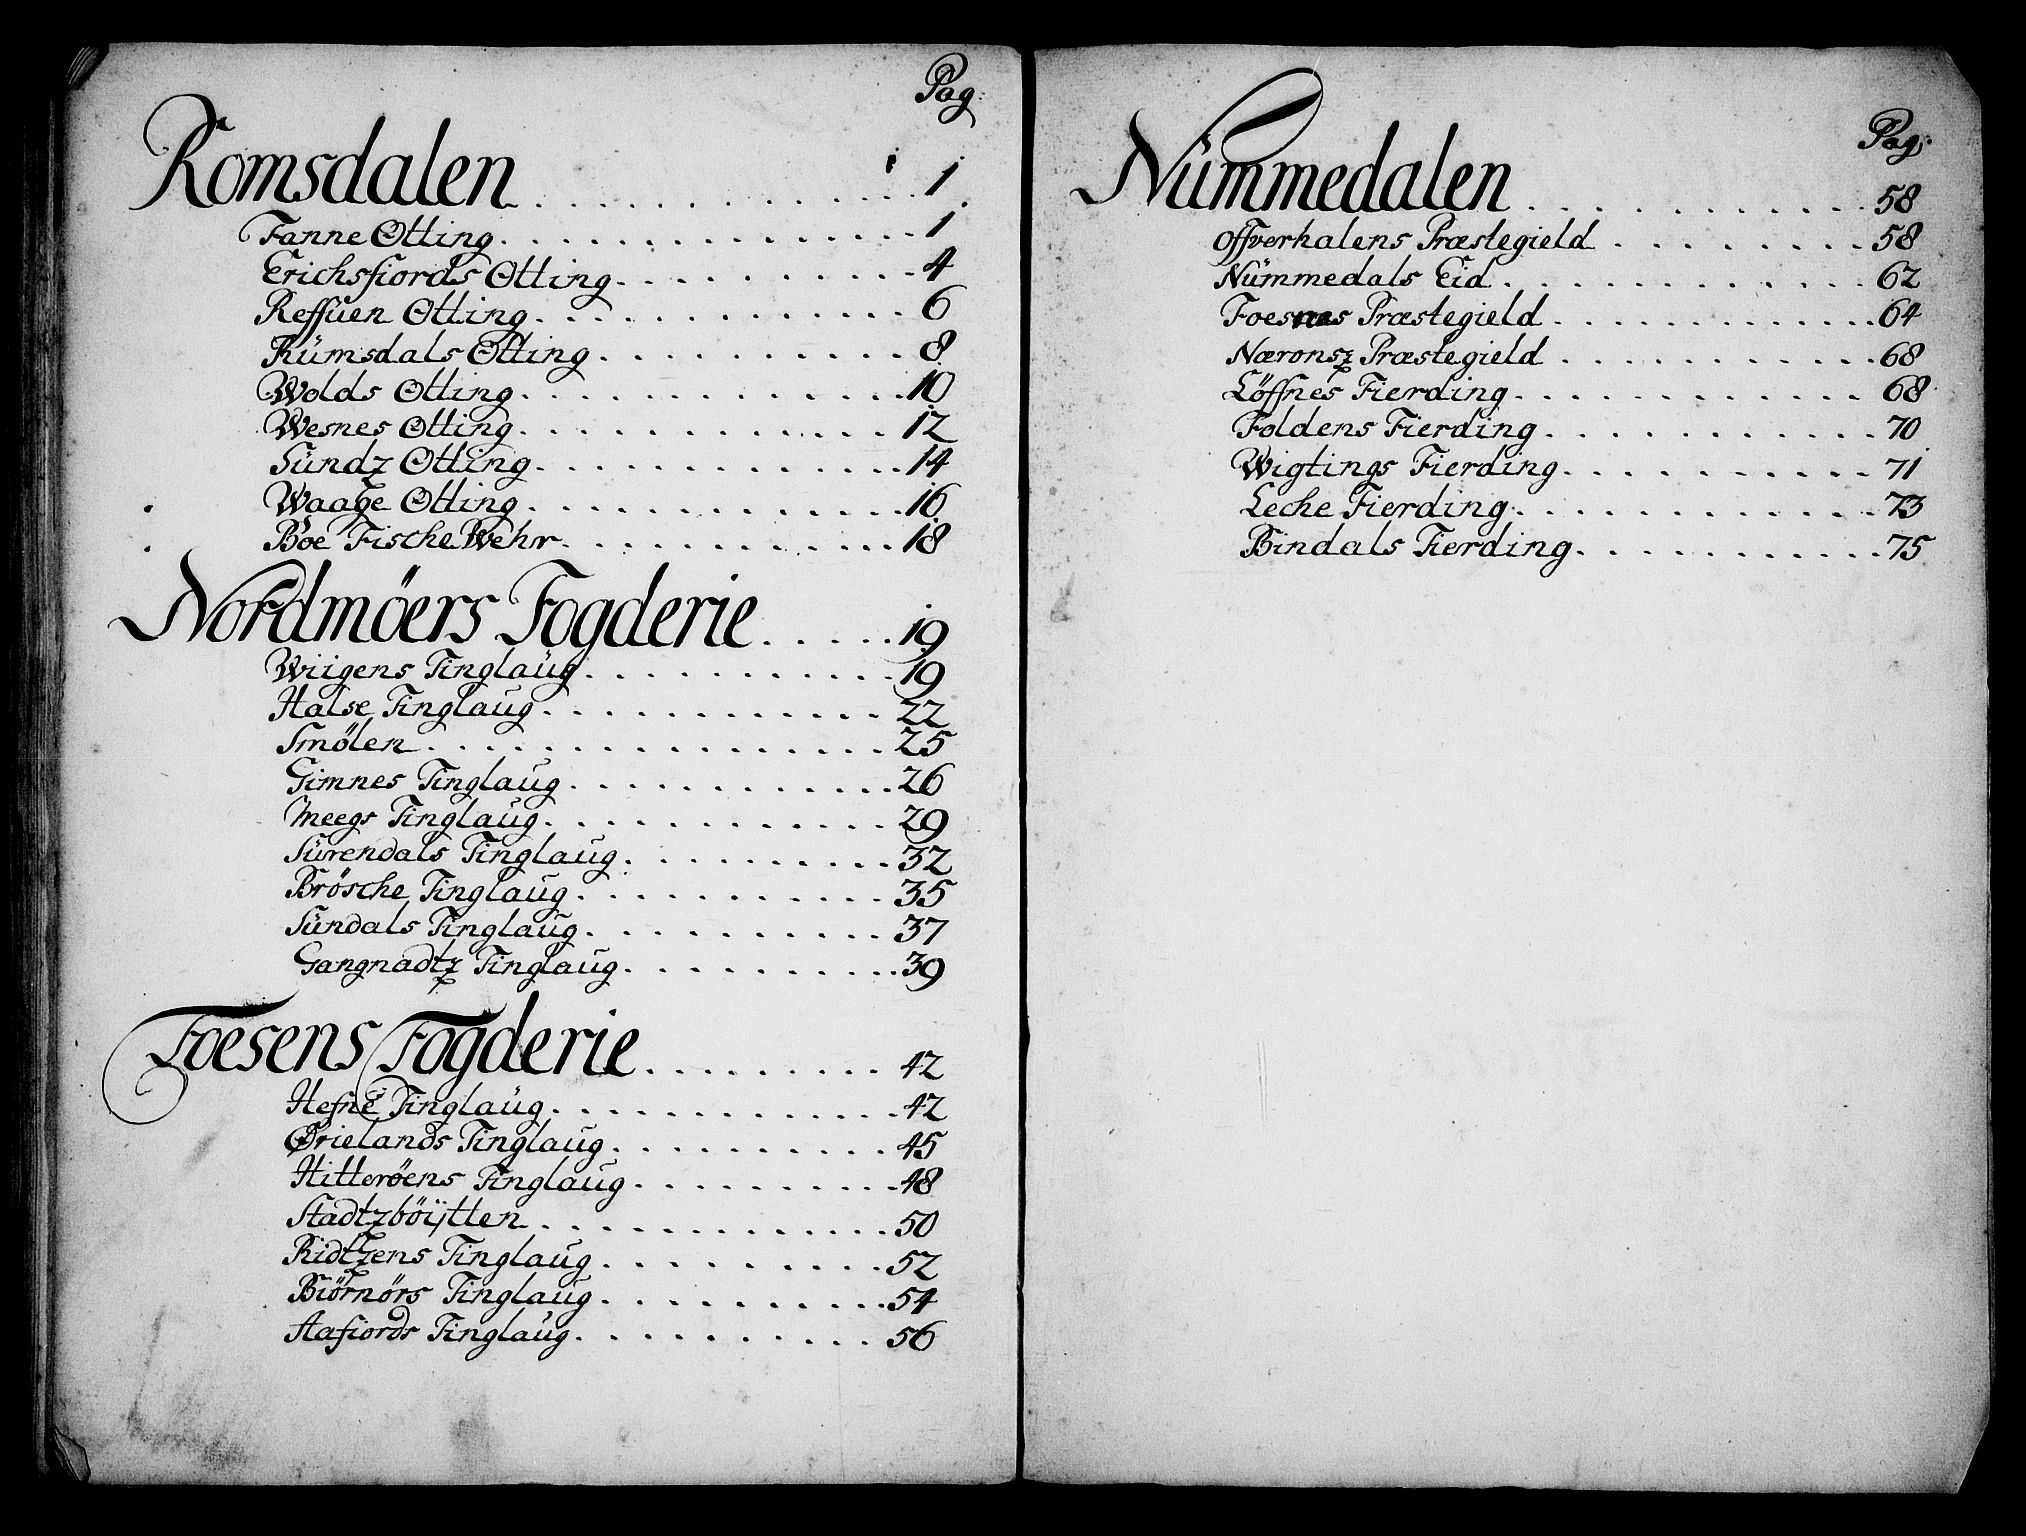 Pag:
Romsdalen . . . . . . . . . . . . . . 1
Fanne Otting. . . . . . . . . . . . . . 1
Erichsfiords Otting. . . . . . . . . . . 4
Reffuen Otting. . . . . . . . . . . . . 6
Rümsdals Otting . . . . . . . . . . . 8
Wolds Otting. . . . . . . . . . . . . . 10
Wesnes Otting. . . . . . . . . . . . . 12
Sündz Otting. . . . . . . . . . . . . 14
Waage Otting . . . . . . . . . . . . . 16
Böe Fische Wehr. . . . . . . . . . . . 18
Nordmöers Fogderie. . . . . . 19
Wiigens Tinglaüg. . . . . . . . . . . 19
Halse Tinglaug. . . . . . . . . . . . 22
Smølen . . . . . . . . . . . . . . . . 25
Gimnes Tinglaug. . . . . . . . . . . . 26
Meegs Tinglaug. . . . . . . . . . . . . 29
Sürendals Tinglaug. . . . . . . . . . 32
Brösche Tinglaug. . . . . . . . . . . 35
Sündals Tinglaug. . . . . . . . . . . 37
Gangnadtz Tinglaug. . . . . . . . . . 39
Foesens Fogderie . . . . . . . . . 42
Hefne Tinglaüg. . . . . . . . . . . . . 42
Ørielands Tinglaug. . . . . . . . . . . 45
Hitteröens Tinglaug. . . . . . . . . . 48
Stadtzböijtten . . . . . . . . . . . . . 50
Ridtzens Tinglaug. . . . . . . . . . . 52
Biörnörs Tinglaug. . . . . . . . . . . 54
Aafiords Tinglaug. . . . . . . . . . . 56
Pag:
Nümmedalen . . . . . . . . . . . . . 58
Offverhalens Præstegield . . . . . . . . 58
Nümmedals Eid. . . . . . . . . . . . . 62
Foesnes Præstegield . . . . . . . . . . 64
Næronsz Præstegield . . . . . . . . . . 68
Löffnes Fierding. . . . . . . . . . . . . 68
Foldens Fierding. . . . . . . . . . . . 70
Wigtings Fierding. . . . . . . . . . . 71
Leche Fierding. . . . . . . . . . . . . 73
Bindals Fierding. . . . . . . . . . . . 75